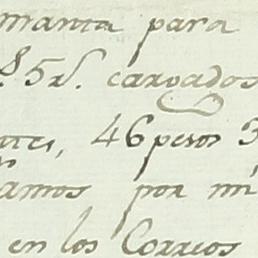 manta para
5 r.s cargados
46 pesos 3
amos por mi
en los Correos